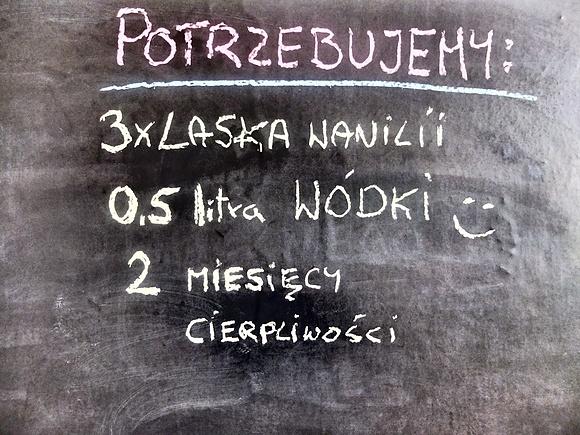 POTRZEBUJEMY:
3x LASKA WANILII
0.5 litra WÓDKI
2 MIESIĘCY
CIERPLIWOŚCI